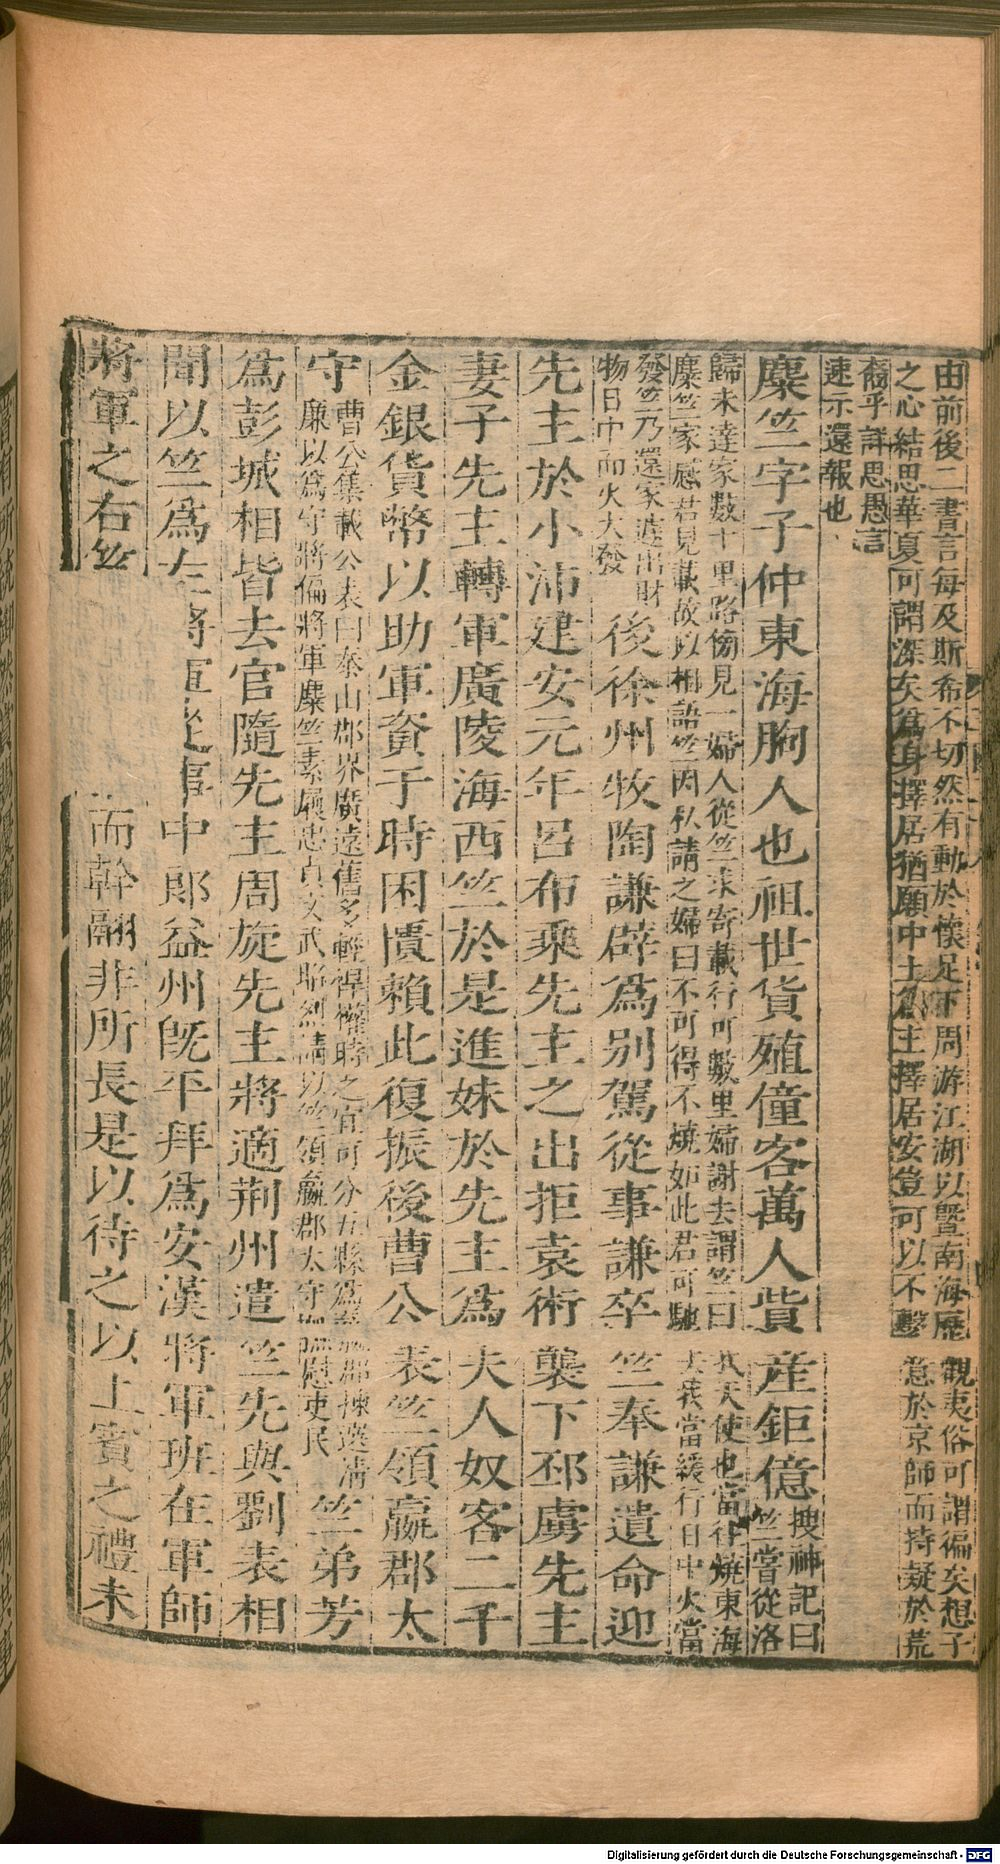 由前後二書言每及斯希不切然有動於懷足下周游江湖以暨南海歷觀夷俗可謂徧矣想子
之心結思華夏可謂深矣爲身擇居猶願中土爲主擇居安豈可以不繫意於京師而持疑於荒
裔乎詳思愚言
速示還報也
麋竺字子仲東海朐人也祖世貨殖僮客萬人貲產鉅億
搜神記曰
竺當從洛
歸未達家數十里路傍見一婦人從竺求寄載行可數里婦謝去謂竺曰我天使也當往燒東海
麋竺家感君見載故以相語竺因私請之婦曰不可得不燒如此君可馳去我當緩行日中火當
發竺乃還家遽出財
物日中而火大發
後徐州牧陶謙辟爲別駕從事謙卒竺奉謙遺命迎
先主於小沛建安元年呂布乘先主之出拒袁術襲下邳虜先主
妻子先主轉軍廣陵海西竺於是進妹於先主爲夫人奴客二千
金銀貨幣以助軍資于時困匱賴此復振後曹公表竺領嬴郡太
守
曹公集載公表曰泰山郡界廣遠舊多輕悍權時之宜可分五縣爲嬴郡揀選清
廉以爲守將偏將軍麋竺素履忠貞文武昭烈請以竺領嬴郡太守撫慰吏民
竺弟芳
爲彭城相皆去官隨先主周旋先主將適荆州遣竺先與劉表相
聞以竺爲左將軍從事中郎益州旣平拜爲安漢將軍班在軍師
將軍之右竺
而幹翮非所長是以待之以上賓之禮未
Digitalisierung gefördert durch die Deutsche Forschungsgemeinschaft - DFG